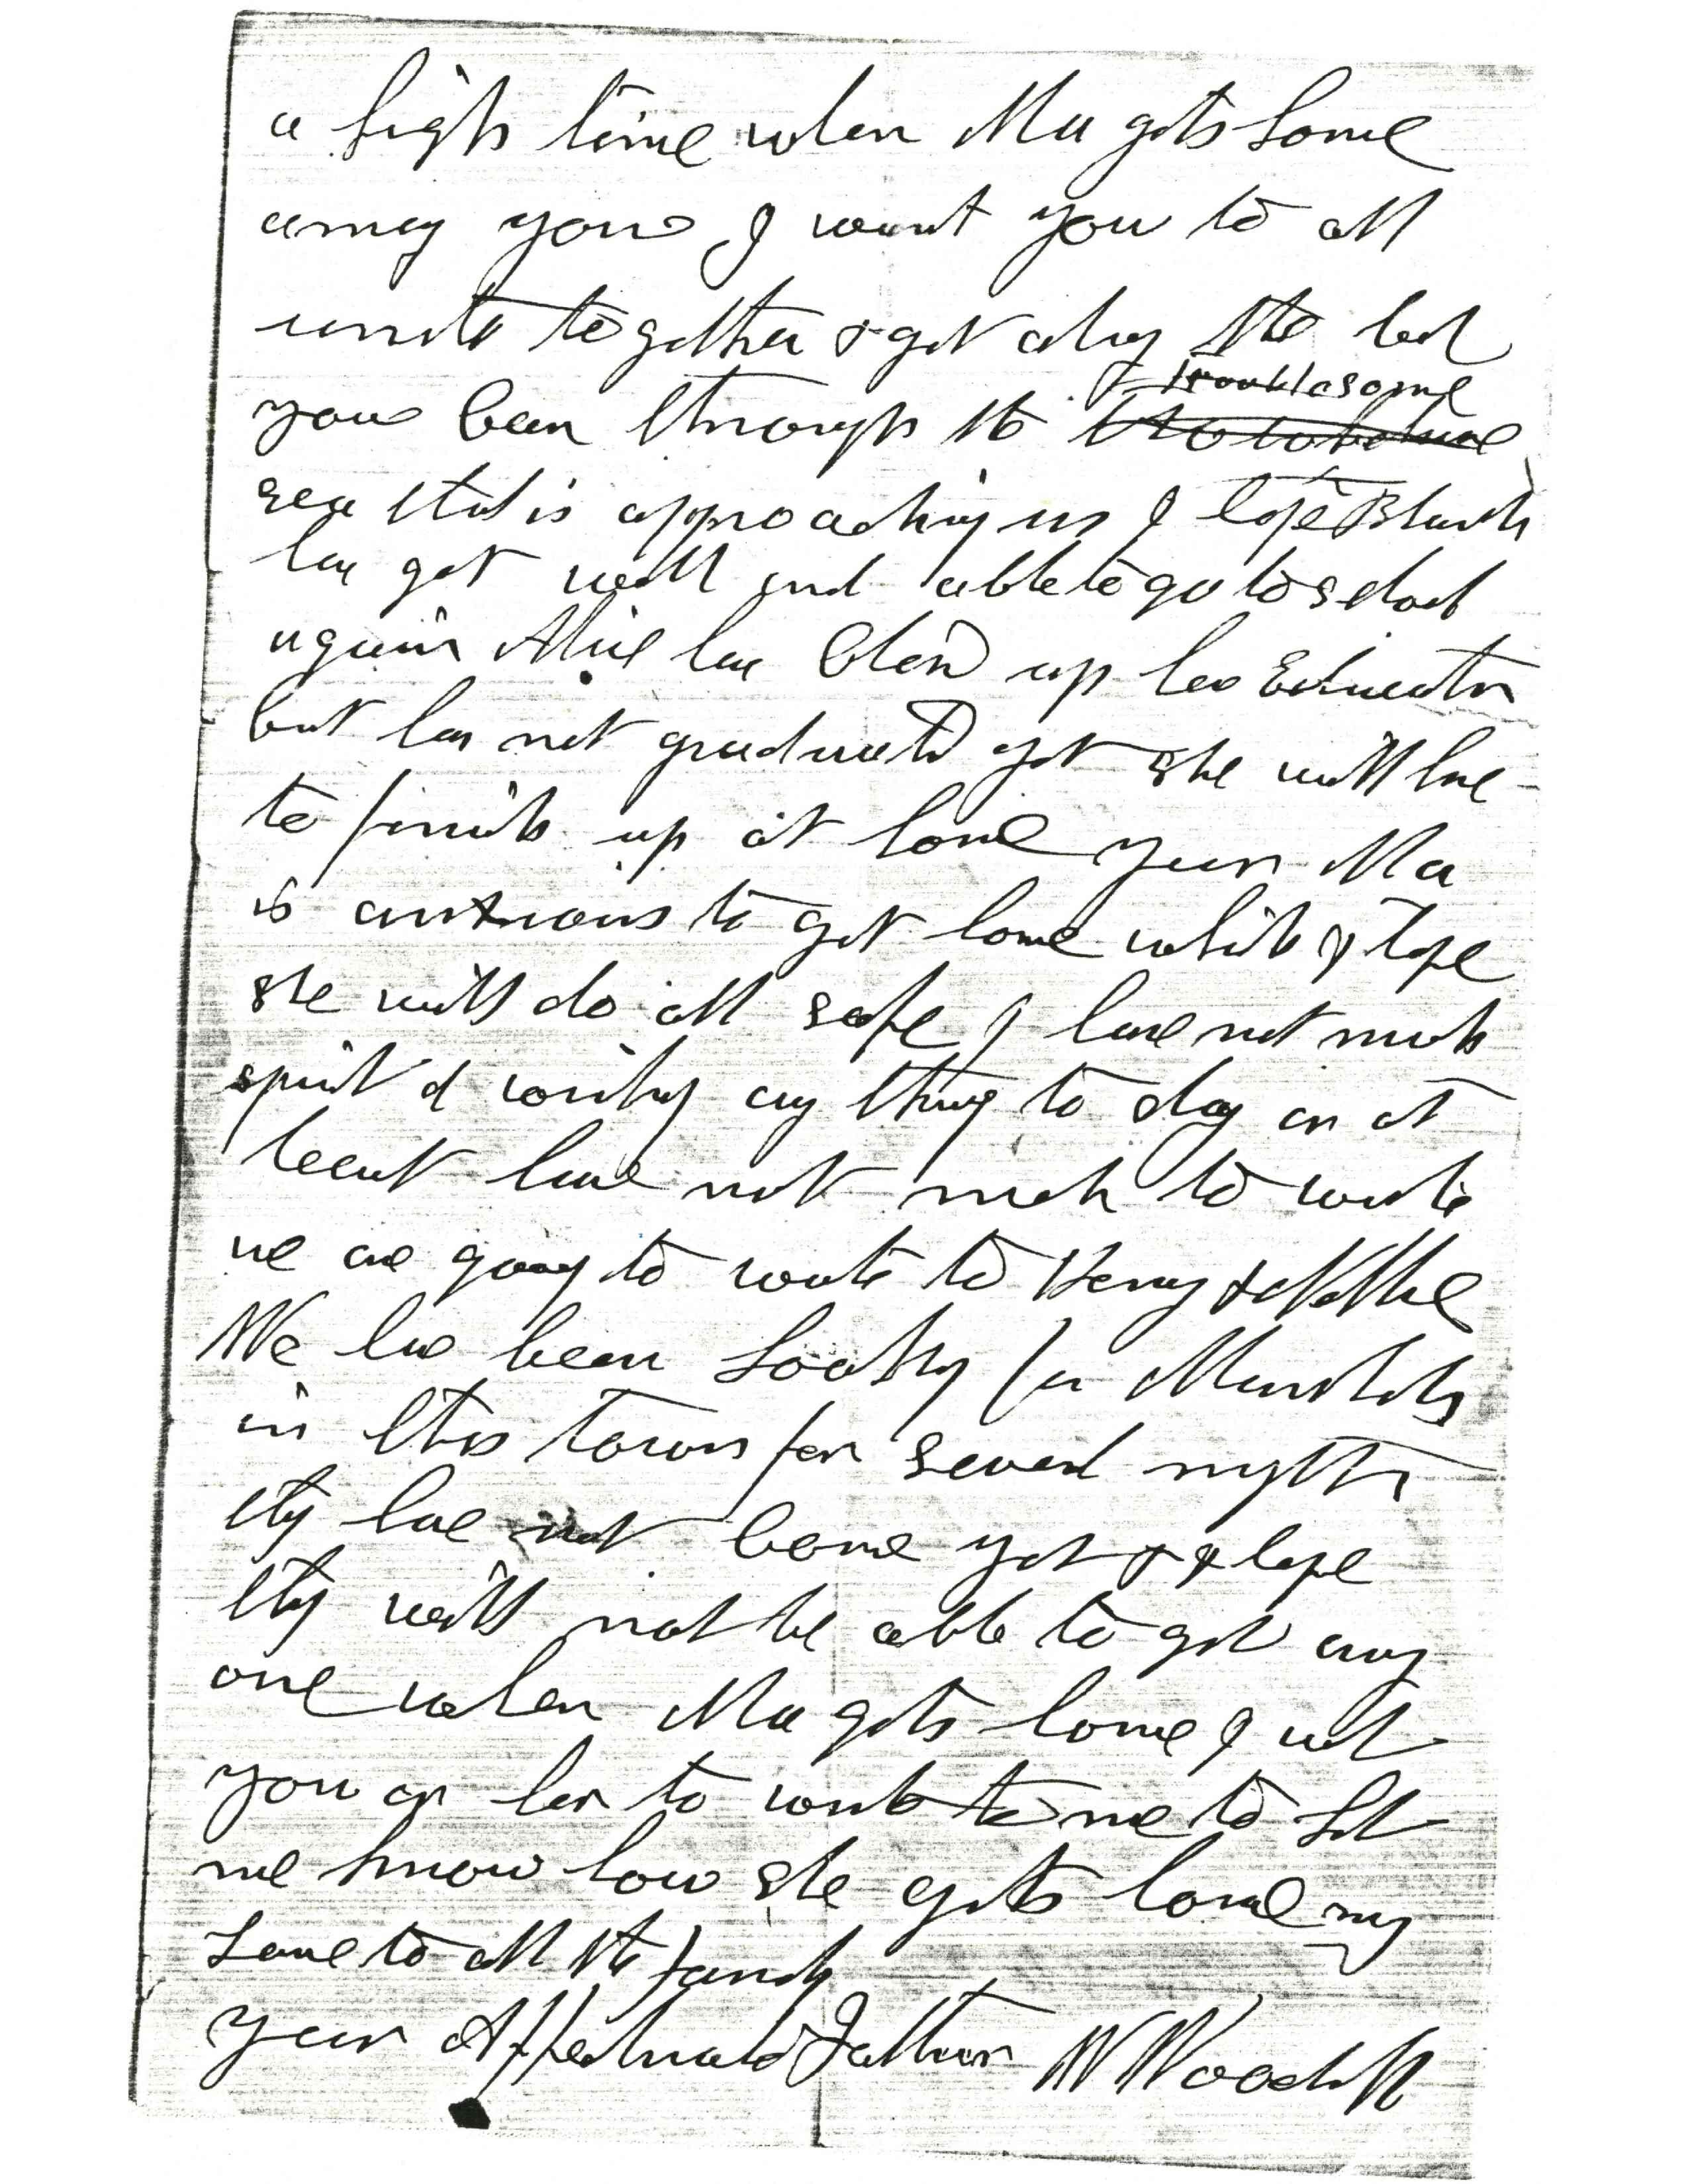 a high time when Ma gets home
among you I want you to all
unite together & get along the best
you can through the troublesome
sea that is approaching us I hope Blanch
has got well and able to go to school
again Alice has blend up her Education
but has not graduated yet she will have
to finish up at home your Ma
is anxious to get home which I hope
she will do all safe I have not much
spirit of writing any thing to day or at
least have not much to write
we are going to write to Henry & Nellie
We have been looking for
in this town for several nights
they have not come yet & I hope
they will not be able to get any
one when Ma gets home I want
you or her to write to me to let
me know how she gets home my
Love to all the family
your Affectionate Father W